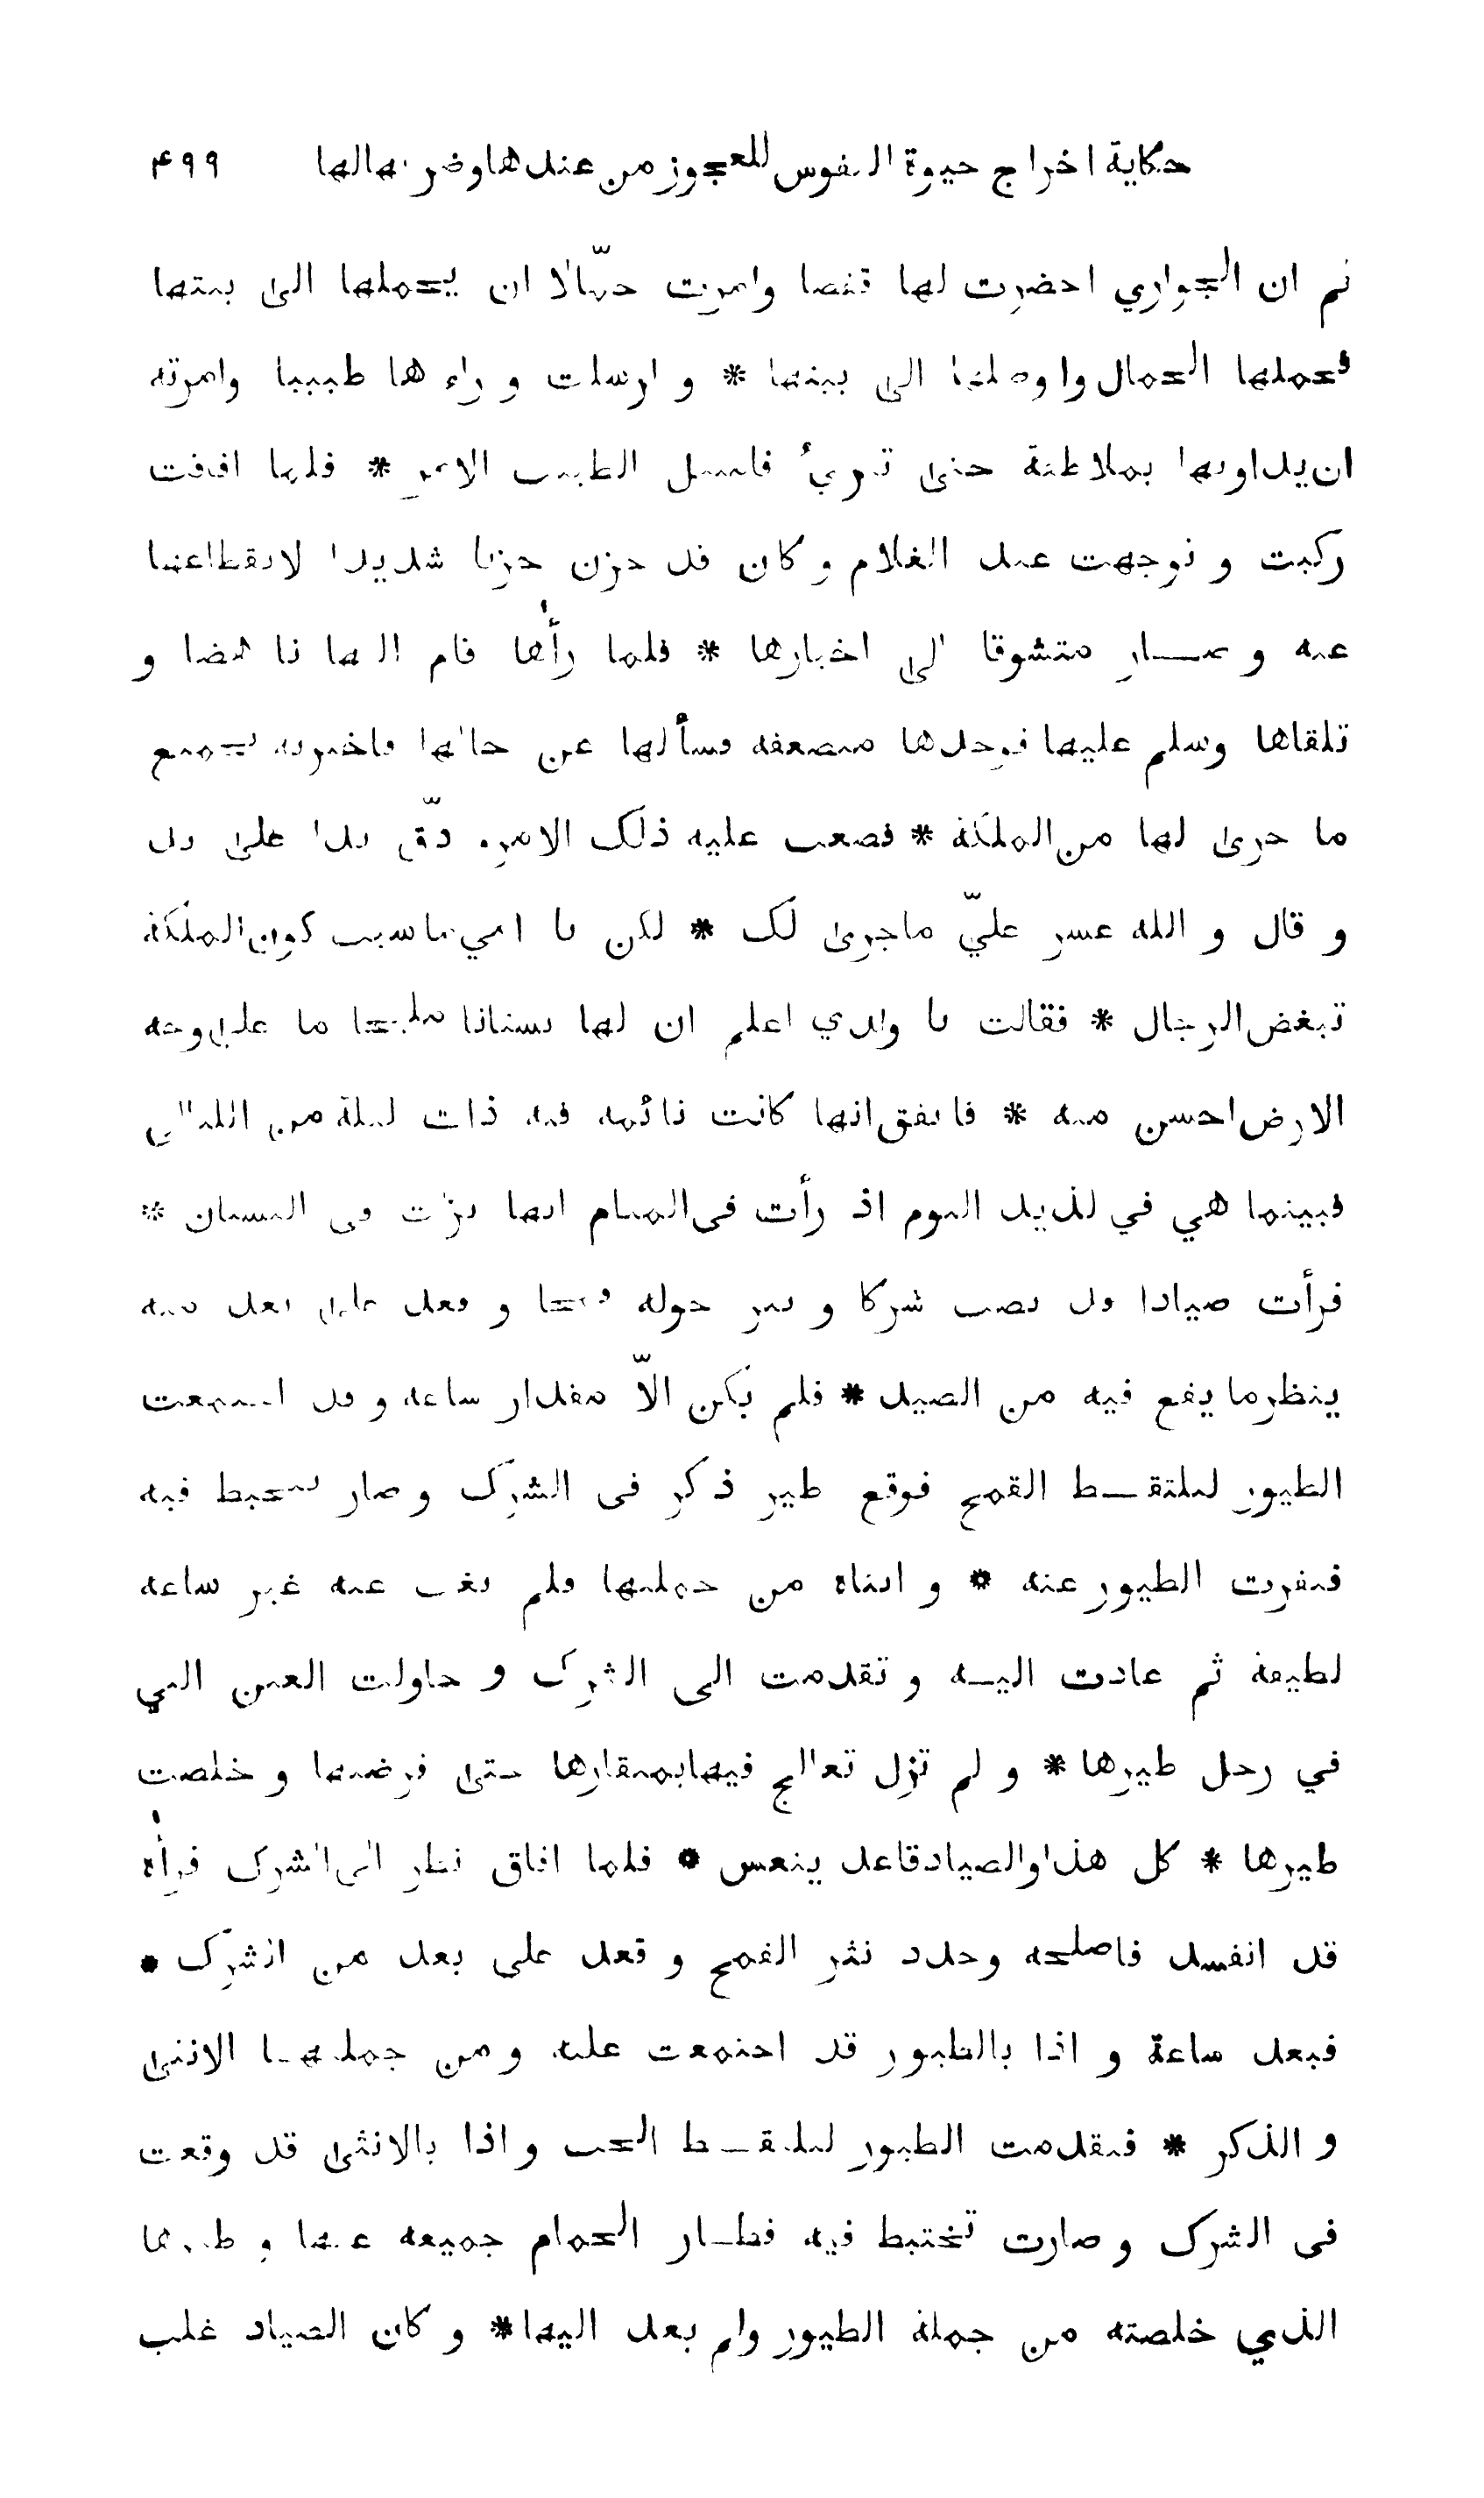 حكاية اخراج حيوة النفوس للعجوز من عندها وضربها لها ۴۹۹
ثم ان الجواري احضرت لها قفصا وامرت حمّالا ان يحملها الى بيتها
فحملها الحمال واوصلها الى بيتها * و ارسلت و راء ها طبيبا وامرته
ان يداويها بملاطفة حتى تبرئ فامتثل الطبيب الامر * فلما افاقت
ركبت و توجهت عند الغلام و كان قد حزن حزنا شديدا لانقطاعها
عنه و صار متشوقا الى اخبارها * فلما رأها قام اليها ناهضا و
تلقاها وسلم عليها فوجدها متضعفة فسألها عن حالها فاخبرته بجميع
ما جرى لها من الملكة * فصعب عليه ذلك الامر و دقّ يدا على يد
و قال و الله عسر عليّ ماجرى لك * لكن يا امي ما سبب كون الملكة
تبغض الرجال * فقالت يا ولدي اعلم ان لها بستانا مليحا ما على وجه
الارض احسن منه * فاتفق انها كانت نائمة فيه ذات ليلة من الليالي
فبينما هي في لذيذ النوم اذ رأت فى المنام انها نزلت فى البستان *
فرأت صيادا قد نصب شركا و نثر حوله قمحا و قعد على بعد منه
ينظر ما يقع فيه من الصيد * فلم يكن الاّ مقدار ساعة و قد اجتمعت
الطيور لتلتقط القمح فوقع طير ذكر فى الشرك و صار يتخبط فيه
فنفرت الطيور عنه * و انثاه من جملتها فلم تغب عنه غير ساعة
لطيفة ثم عادت اليه و تقدمت الى الشرك و حاولت العين التي
في رجل طيرها * و لم تزل تعالج فيها بمنقارها حتى قرضتها و خلصت
طيرها * كل هذا والصياد قاعد ينعس * فلما افاق نظر الى الشرك فرأه
قد انفسد فاصلحه وجدد نثر القمح و قعد على بعد من الشرك *
فبعد ساعة و اذا بالطيور قد اجتمعت عليه و من جملتها الانثى
و الذكر * فتقدمت الطيور لتلتقط الحب و اذا بالانثى قد وقعت
فى الشرك و صارت تختبط فيه فطار الحمام جميعه عنها و طيرها
الذي خلصته من جملة الطيور ولم يعد اليها * و كان الصياد غلب